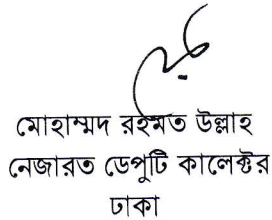 মোহাম্মদ রহমত উল্লাহ
নেজারত ডেপুটি কালেক্টর
ঢাকা